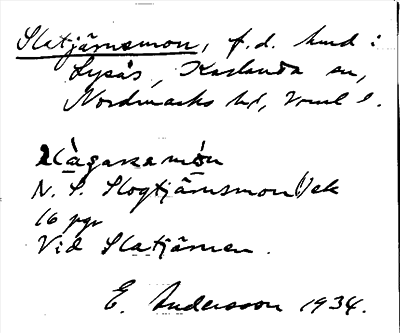 Slatjärnsmon, f.d. hmd i
Lysås, Karlanda sn,
Nordmarks hd, Vrml l.
N. S. Slogtjärnsmon ek
16 pgr
Vid Slatjärnen.
E. Andersson 1934.